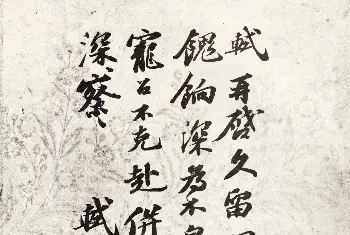 軾再啓久留
餽餉深為不
寵召不克赴併
深察軾